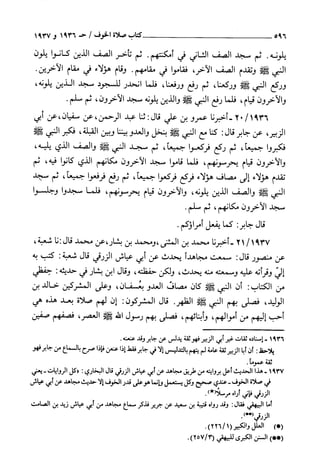 ٥٩٦ كتاب صلاة الخوف / حـ ١٩٣٦ و ١٩٣٧
يلونه. ثم سجد الصف الثاني في أمكنتهم. ثم تأخر الصف الذين كانوا يلون
النبي ﷺ وتقدم الصف الآخر، فقاموا في مقامهم. وقام هؤلاء في مقام الآخرين.
وركع النبي ﷺ وركعنا، ثم رفع ورفعنا، فلما انحدر للسجود سجد الذين يلونه،
والآخرون قيام، فلما رفع النبي ﷺ والذين يلونه سجد الآخرون، ثم سلم.
٢٠/١٩٣٦ - أخبرنا عمرو بن علي قال: ثنا عبد الرحمن، عن سفيان، عن أبي
الزبير، عن جابر قال: كنا مع النبي ﷺ بنخل والعدو بيننا وبين القبلة، فكبر النبي ﷺ
فكبروا جميعاً، ثم ركع فركعوا جميعاً، ثم سجد النبي ﷺ والصف الذي يليه،
والآخرون قيام يحرسونهم، فلما قاموا سجد الآخرون مكانهم الذي كانوا فيه، ثم
تقدم هؤلاء إلى مصاف هؤلاء فركع فركعوا جميعاً، ثم رفع فرفعوا جميعاً، ثم سجد
النبي ﷺ والصف الذين يلونه، والآخرون قيام يحرسونهم، فلما سجدوا وجلسوا
سجد الآخرون مكانهم، ثم سلم.
قال جابر: كما يفعل أمراؤكم.
٢١/١٩٣٧ - أخبرنا محمد بن المثنى، ومحمد بن بشار، عن محمد قال: نا شعبة،
عن منصور قال: سمعت مجاهداً يحدث عن أبي عياش الزرقي قال شعبة: كتب به
إليّ وقرأته عليه وسمعته منه يحدث، ولكن حفظته، وقال ابن بشار في حديثه: حفظي
من الكتاب: أن النبي ﷺ كان مصافّ العدو بعُسفان، وعلى المشركين خالد بن
الوليد، فصلى بهم النبي ﷺ الظهر. قال المشركون: إن لهم صلاة بعد هذه هي
أحب إليهم من أموالهم، وأبنائهم، فصلى بهم رسول الله ﷺ العصر، فصفهم صفين
١٩٣٦ - إسناده ثقات غير أبي الزبير فهو ثقة يدلس عن جابر وقد عنعنه.
يلاحظ: أن أبا الزبير ثقة عامة لم يتهم بالتدليس إلا في جابر فقط إذا عنعن فإذا صرح بالسماع من جابر فهو
ثقة عموماً.
١٩٣٧ - هذا الحديث أعل بروايته من طريق مجاهد عن أبي عياش الزرقي قال البخاري: وكل الروايات - يعني
في صلاة الخوف - عندي صحيح وكل يستعمل وإنما هو على قدر الخوف إلا حديث مجاهد عن أبي عياش
الزرقي فإني أراه مرسلاً(*).
أما البيهقي فقال: وقد رواه قتيبة بن سعيد عن جرير فذكر سماع مجاهد من أبي عياش زيد بن الصامت
الزرقي(**).
(*) العلل والكبير (٢٢٦/١).
(**) السنن الكبرى للبيهقي (٢٥٧/٣).